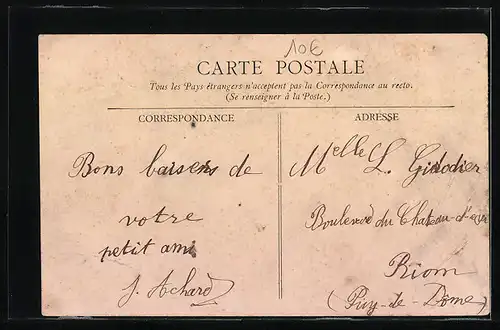 10€
CARTE POSTALE
Tous les Pays étrangers n'acceptent pas la Correspondance au recto.
(Se renseigner à la Poste.)
CORRESPONDANCE
Bons baisers de
votre
petit ami
J. Achard
ADRESSE
Melle L. Girodier
Boulevard du Chateau-d'eau
Riom
(Puy-de-Dome)